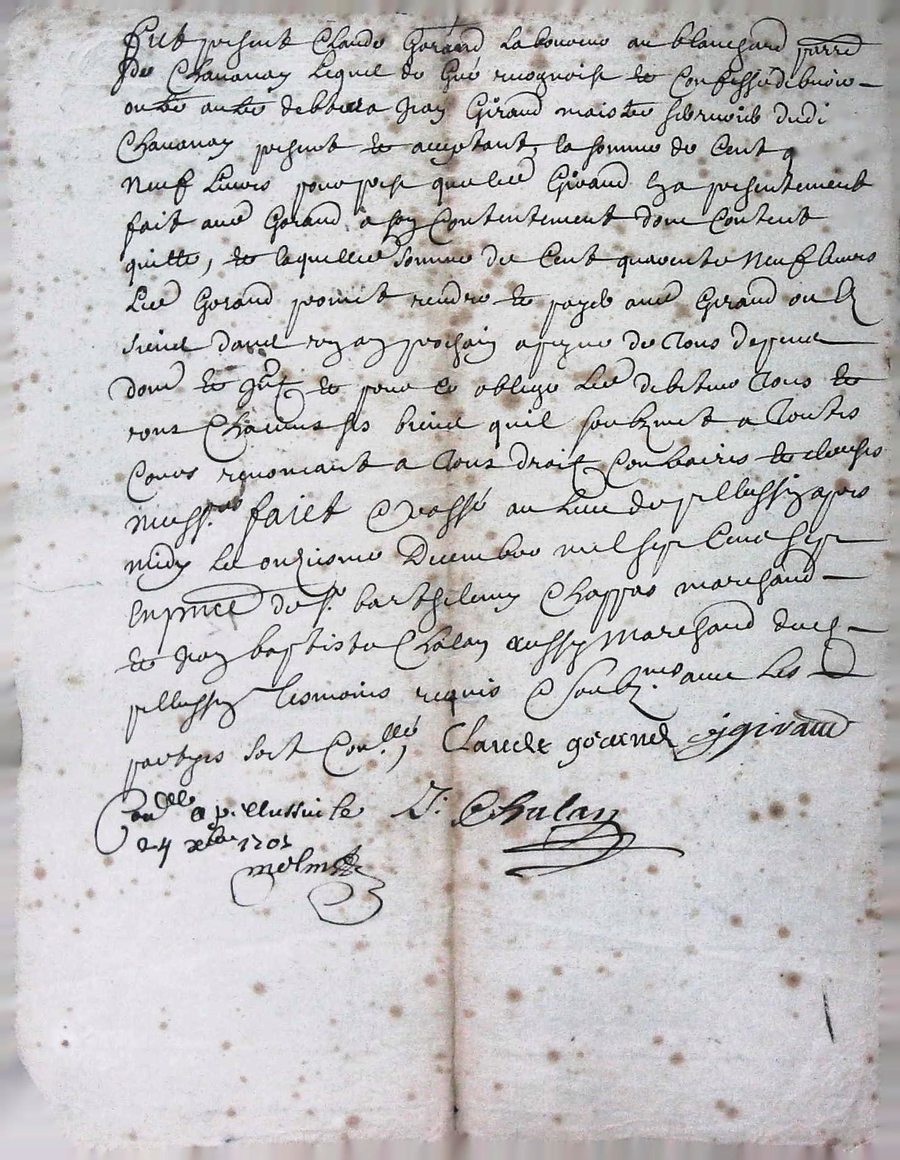 Fut present Claude Gerand laboureur au blanchard parre
de Chavanay lequel de gré recognoist et Confesse debvoir
oultre aultre debte a Jean Girand maistre dudi
Chavanay present et acceptant, la somme de Cent q
Neuf livres pour prest que led Girand l a presentement
fait aud Gerand a son Contentement dont Content
quitte, et laquelle somme de Cent quarente Neuf livres
Led Gerand promet rendre et payer aud Girand ou
siens dans prochain a peyne de tous despens
dom et et pour ce oblige led debiteur tous et
uns Chacuns ses biens quil soubzmet a toutes
Cours renoncant a tous droits Contraires et clauses
necess.res faict & passé au lieu de pellussin apres
midy le onziesme Decembre mil sept Cens sept
en pnce de sr barthelemy Chappas marchand
et Jean baptiste Chalan aussy Marchand dud
pellussin tesmoins requis & soubz.nes avec les D
partyes soit Con.llé, Claude gerand J girand
Con.llé a pellussin le J. Chalan
24 xbre 170